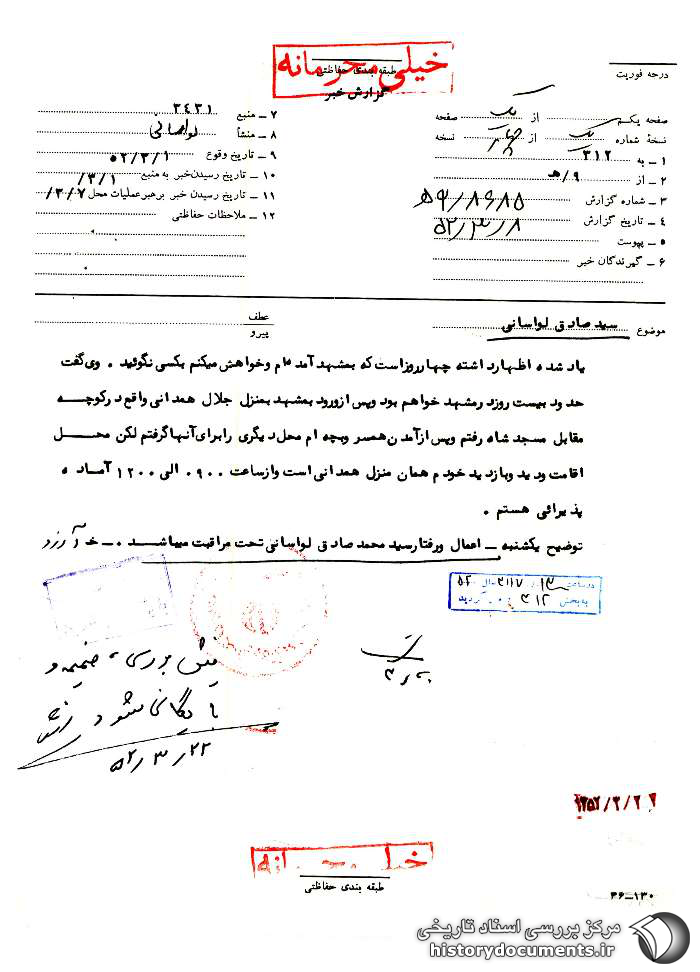 خیلی محرمانه
طبقه بندی حفاظتی
گزارش خبر
درجه فوریت
صفحه یکم از یک صفحه
نسخهٔ شماره یک از چهار نسخه
۱ ـ به ۳۱۲
۲ ـ از ۹/هـ
۳ ـ شماره گزارش
۴ ـ تاریخ گزارش ۵۲/۳/۸
۵ ـ پیوست
۶ ـ گیرندگان خبر
۷ ـ منبع ۲۴۳۱
۸ ـ منشأ لواسانی
۹ ـ تاریخ وقوع ۵۲/۳/۱
۱۰ ـ تاریخ رسیدن خبر به منبع ۳/۱/
۱۱ ـ تاریخ رسیدن خبر برهبر عملیات محل ۳/۷/
۱۲ ـ ملاحظات حفاظتی
موضوع سید صادق لواسانی
عطف
پیرو
یاد شده اظهار داشته چهار روز است که بمشهد آمده ام و خواهش میکنم بکسی نگوئید . وی گفت
حدود بیست روز در مشهد خواهم بود و پس از ورود بمشهد بمنزل جلال همدانی واقع در کوچه
مقابل مسجد شاه رفتم و پس از آمدن همسر و بچه ام محل دیگری را برای آنها گرفتم لکن محل
اقامت و دید و بازدید خودم همان منزل همدانی است و از ساعت ۰۹۰۰ الی ۱۲۰۰ آماده
پذیرائی هستم .
توضیح یکشنبه ـ اعمال و رفتار سید محمد صادق لواسانی تحت مراقبت میباشد .
در ساعت ۱۳
به بخش ۳۱۲ گردید
ضمیمه و
بایگانی شود
۵۲/۳/۲۲
خیلی محرمانه
طبقه بندی حفاظتی
۳۶ــ۱۳۰
مرکز بررسی اسناد تاریخی
historydocuments.ir